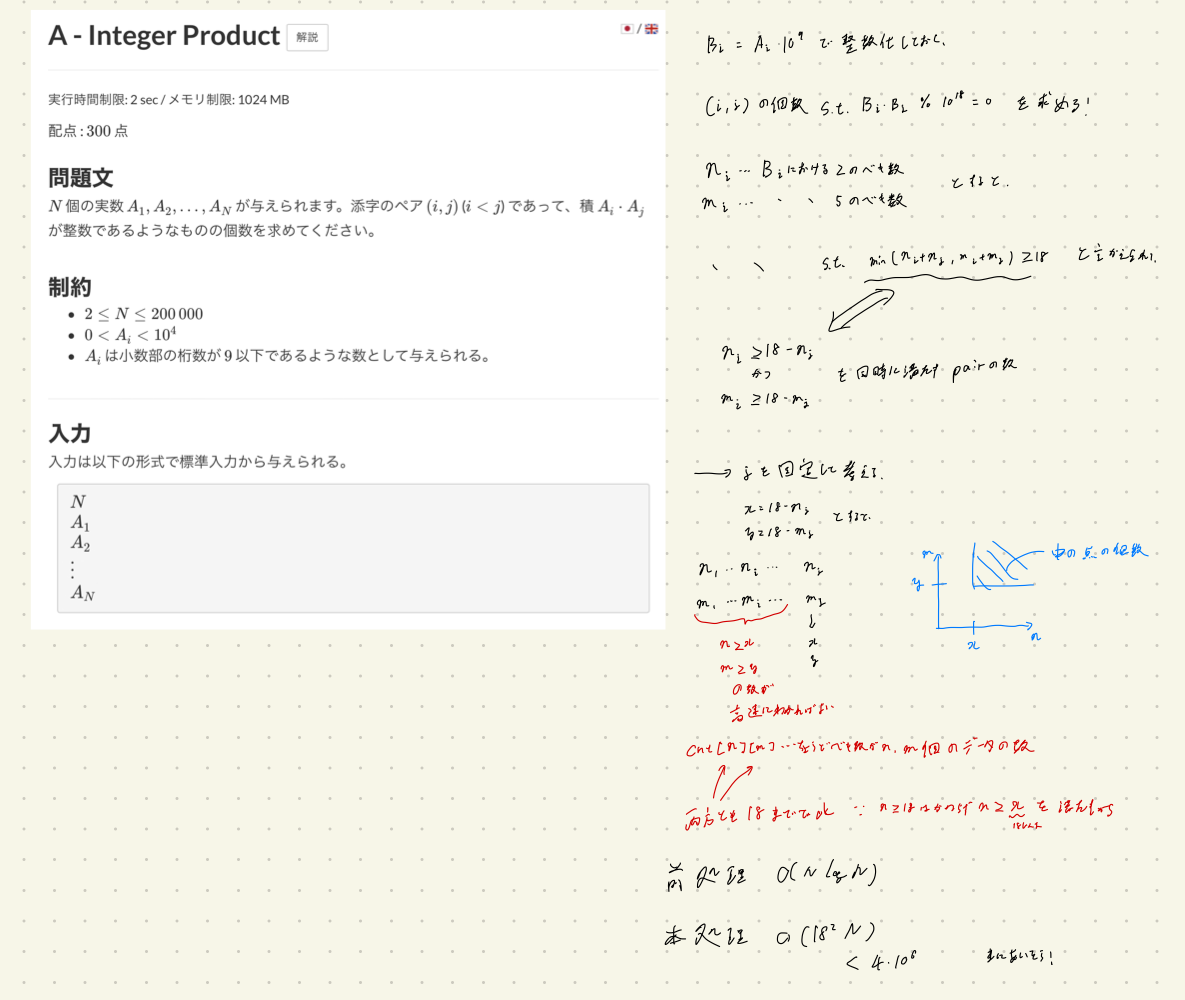 A - Integer Product 解説
/
実行時間制限: 2 sec / メモリ制限: 1024 MB
配点 : 300 点
問題文
N 個の実数 A_1, A_2, …, A_N が与えられます。添字のペア (i, j) (i < j) であって、積 A_i · A_j
が整数であるようなものの個数を求めてください。
制約
• 2 ≤ N ≤ 200 000
• 0 < A_i < 10^4
• A_i は小数部の桁数が 9 以下であるような数として与えられる。
入力
入力は以下の形式で標準入力から与えられる。
N
A_1
A_2
⋮
A_N
B_i = A_i · 10^9 で整数化しておく、
(i, j) の個数 s.t. B_i · B_j % 10^18 = 0 を求める!
n_i … B_i における 2 のべき数
m_i … 〃 5 のべき数
とすると..
〃 s.t. min(n_i+n_j, m_i+m_j) ≥ 18 と言いかえられ、
n_i ≥ 18 - n_j
かつ
m_i ≥ 18 - m_j
を同時に満たす pair の数
→ j を固定して考える.
x = 18 - n_j
y = 18 - m_j
とすると.
n_1 ‥ n_i … n_j
m_1 … m_i … m_j
↓
n ≥ x x
m ≥ y y
の数が
高速にわかればよい
m
y
x
n
中の点の個数
cnt[n][m] … ちょうどべき数が n, m 個のデータの数
両方とも 18 までで ok ∵ n ≥ 18 はかならず n ≥ x を満たすから
18以下
前処理 O(N log N)
本処理 O(18^2 N)
< 4·10^8 まにあいそう!